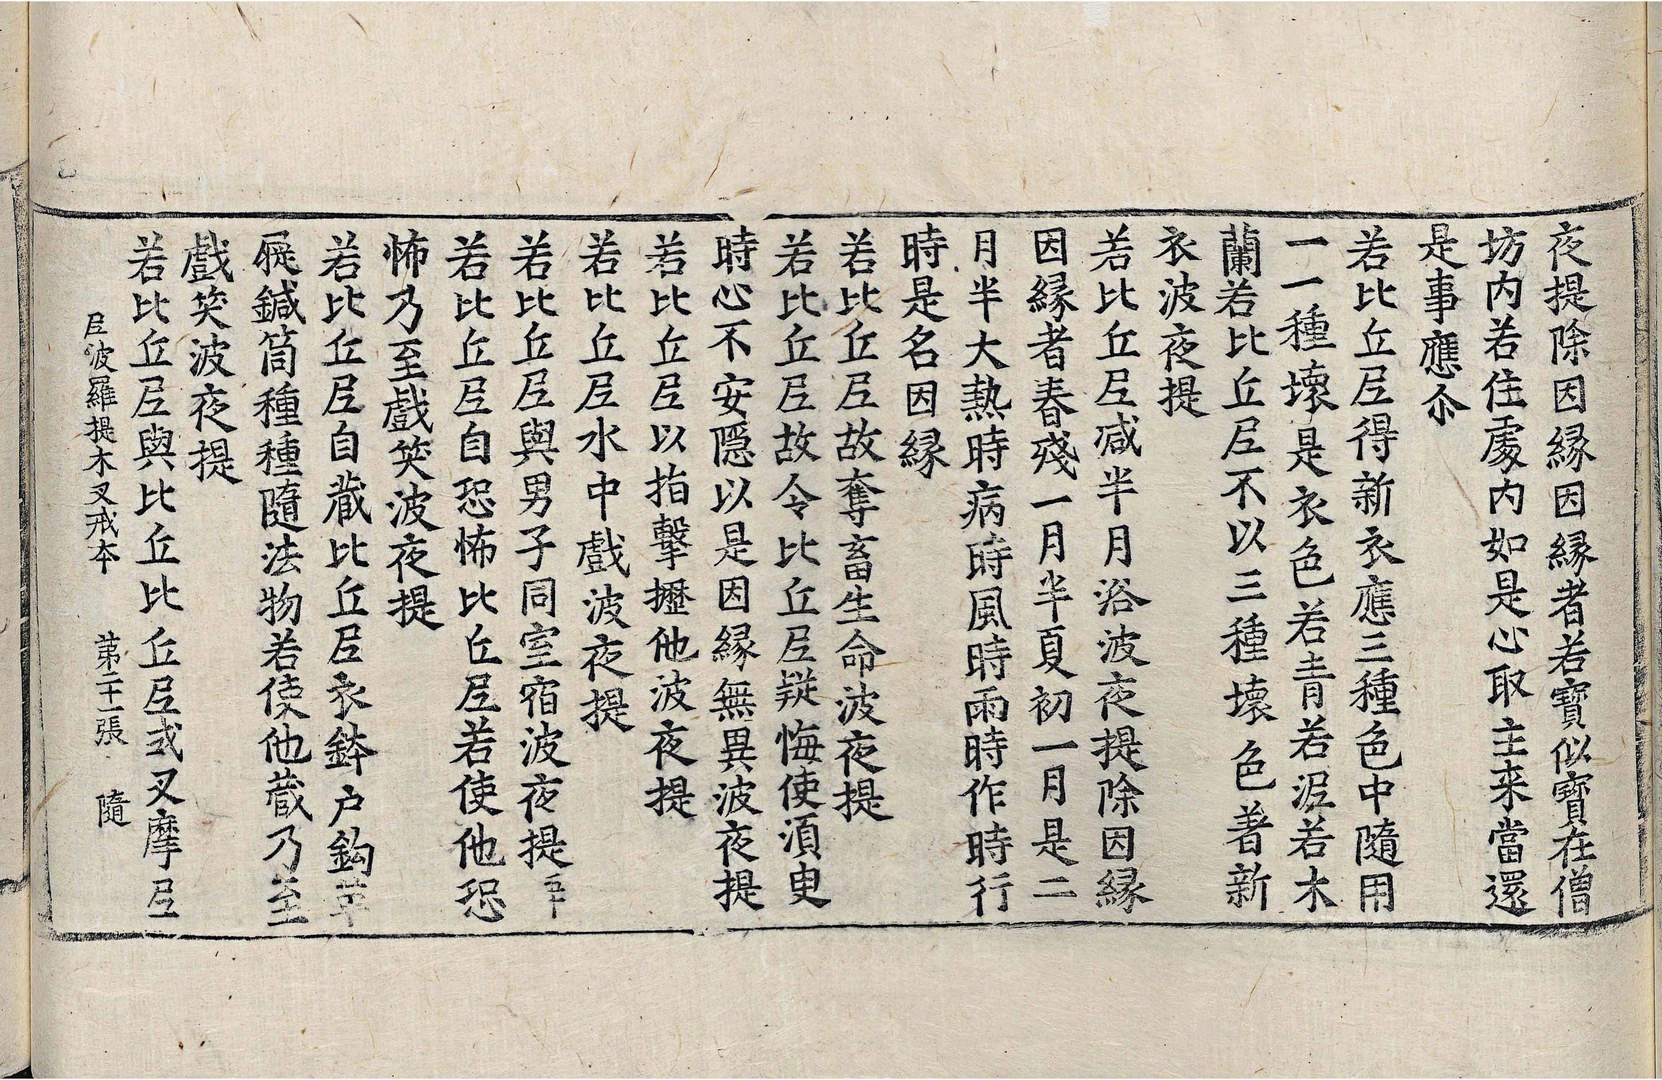 夜提除因縁因縁者若寶似寶在僧
坊內若住處內如是心取主来當還
是事應尒
若比丘尼得新衣應三種色中隨用
一一種壞是衣色若青若泥若木
蘭若比丘尼不以三種壞色著新
衣波夜提
若比丘尼減半月浴波夜提除因縁
因縁者春殘一月半夏初一月是二
月半大熱時病時風時雨時作時行
時是名因縁
若比丘尼故奪畜生命波夜提
若比丘尼故令比丘尼疑悔使須臾
時心不安隱以是因縁無異波夜提
若比丘尼以指擊攊他波夜提
若比丘尼水中戲波夜提
若比丘尼與男子同室宿波夜提五十
若比丘尼自恐怖比丘尼若使他恐
怖乃至戲笑波夜提
若比丘尼自藏比丘尼衣鉢户鈎革
屣鍼筒種種隨法物若使他藏乃至
戲笑波夜提
若比丘尼與比丘比丘尼或叉摩尼
尼波羅提木叉戒本 第二十一張 隨